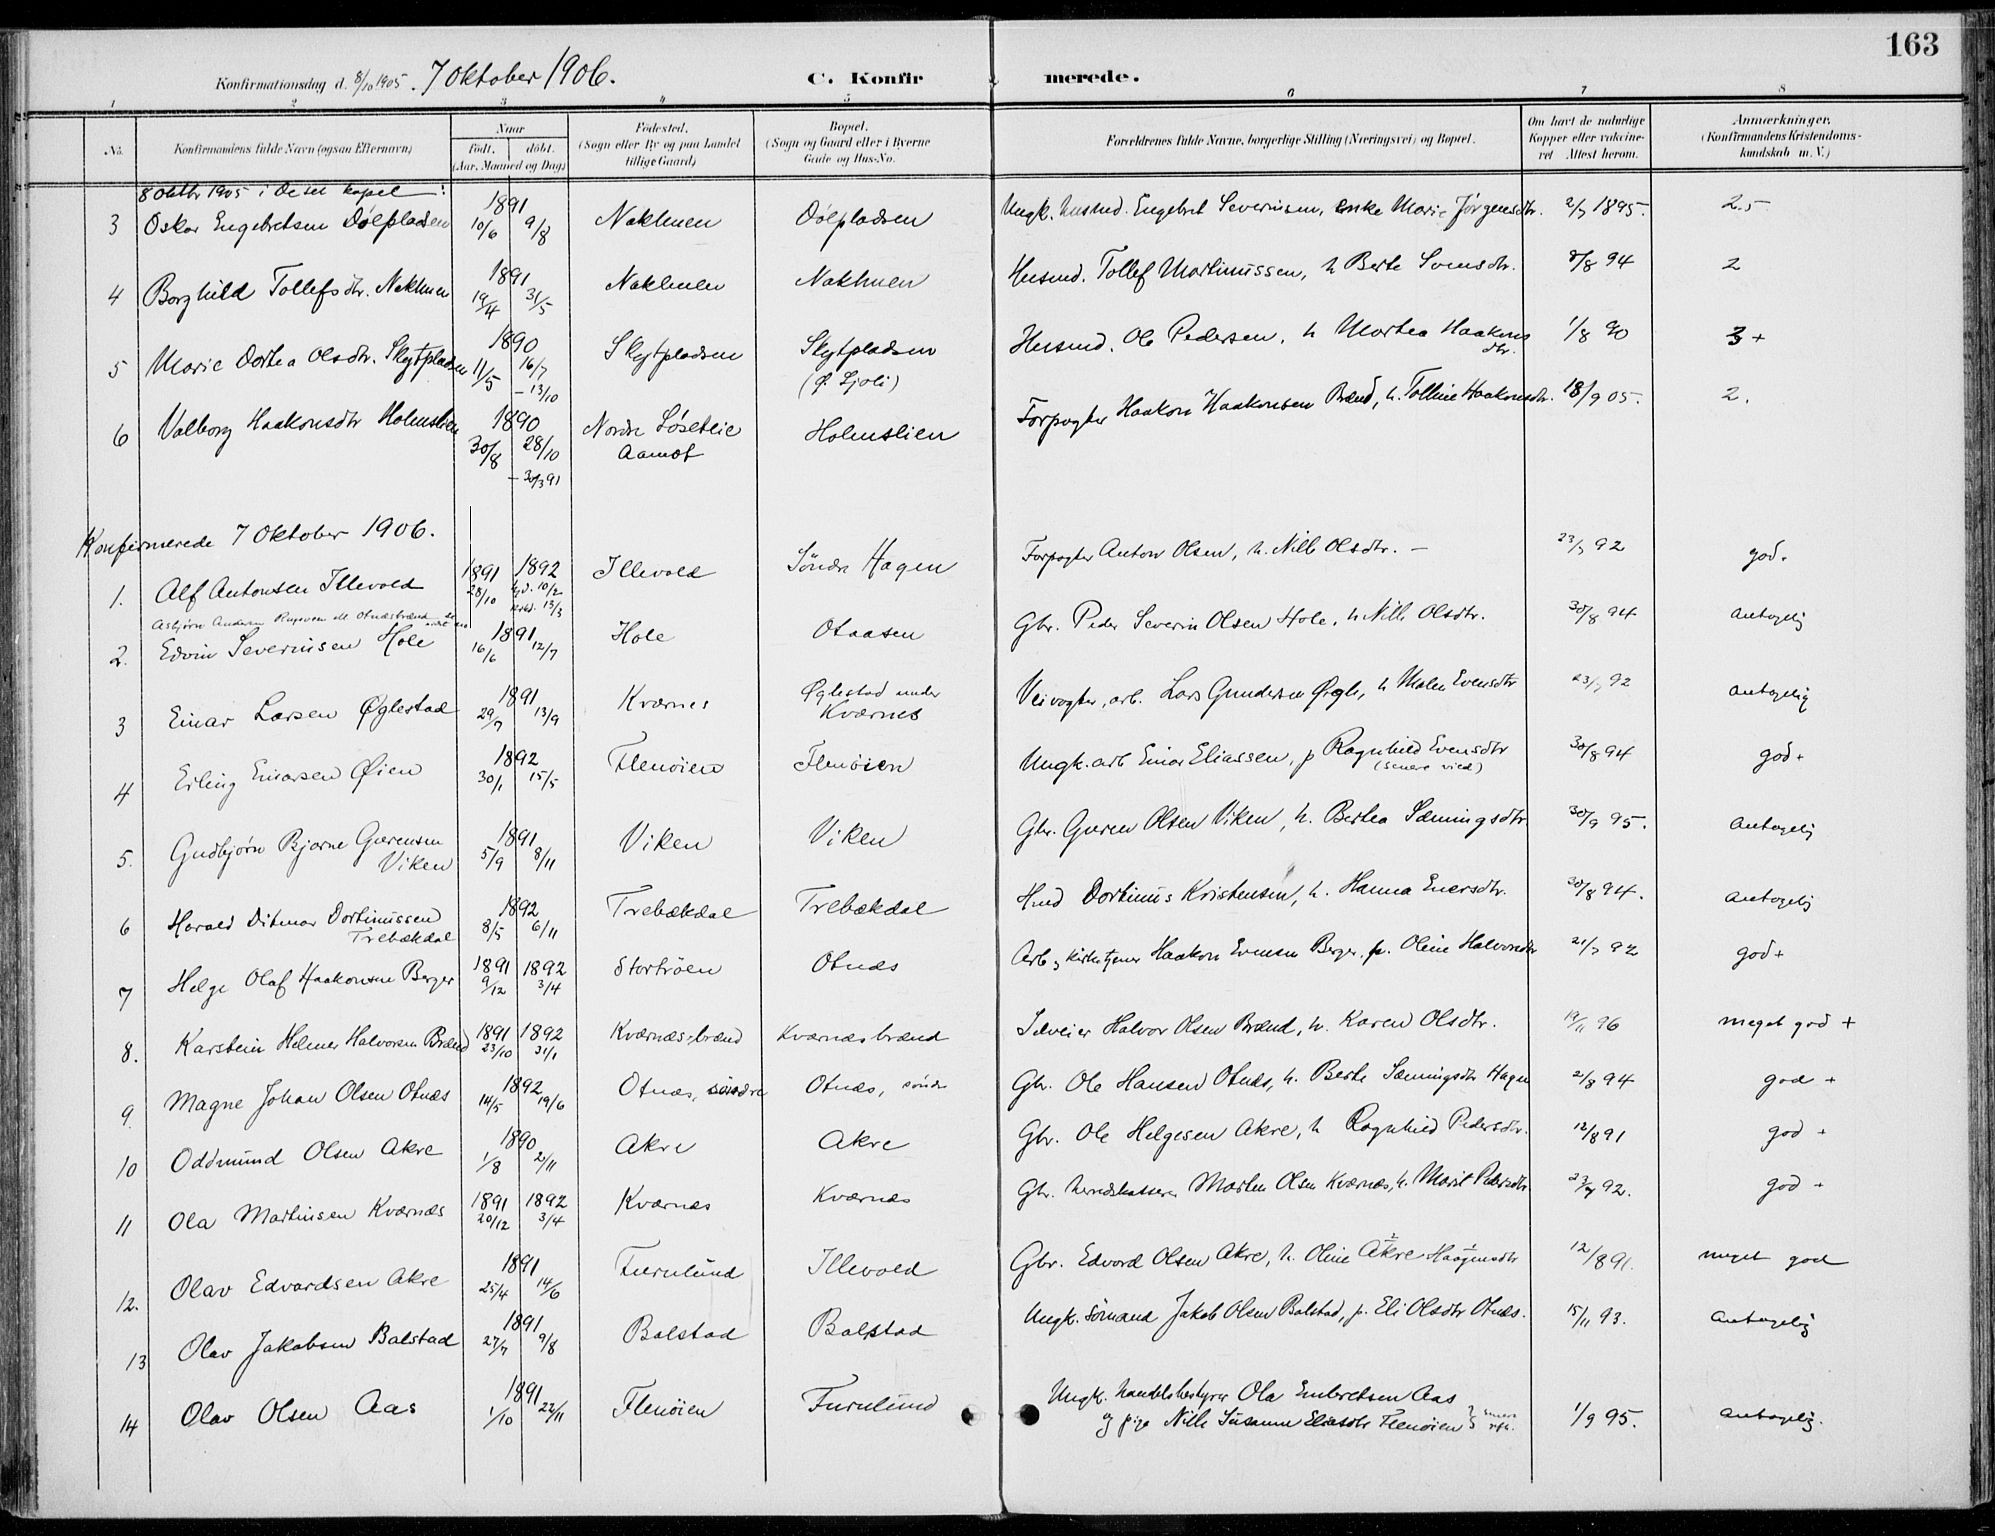 163
Konfirmationsdag d. 8/10 1905. 7 Oktober 1906. C. Konfirmerede.
1 2 3 4 5 6 7 8
No. Konfirmandens fulde Navn (ogsaa Efternavn) Naar født. døbt. (Aar, Maaned og Dag) Fødested. (Sogn eller By og paa Landet tillige Gaard) Bopæl. (Sogn og Gaard eller i Byerne Gade og Hus-No. Forældrenes fulde Navne, borgerlige Stilling (Næringsvei) og Bopæl. Om havt de naturlige Kopper eller vaksineret. Attest herom. Anmærkninger. (Konfirmandens Kristendomskundskab m. V.)
8 Oktbr 1905 i Deset kapel:
3 Oskar Engebretsen Dølpladsen 1891 10/6 9/8 Nakhuen Dølpladsen Ungk. husmd. Engebret Severinsen, enke Marie Jørgensdtr. 2/7 1895. 2.5
4 Borghild Tollefsdtr. Nakhuen 1891 19/4 31/5 Nakhuen Nakhuen Husmd. Tollef Martinussen, h Berte Svensdtr. 8/8 94 2
5 Marie Dortea Olsdtr. Skytpladsen 1890 11/5 16/7 – 13/10 Skytpladsen Skytpladsen (Ø. Ljoli) Husmd. Ole Pedersen, h Martea Haakonsdtr. 1/8 90 3+
6 Valborg Haakonsdtr Holmslien 1890 30/8 28/10 – 30/3 91 Nordre Løsetlie Aamot Holmslien Forpagter Haakon Haakonsen Brænd, h. Tolline Haakonsdtr. 18/9 05. 2.
Konfirmerede 7 Oktober 1906.
1. Alf Antonsen Illevold 1891 28/10 1892 hjd. 10/2 kirkd. 13/3 Illevold Søndre Hagen Forpagter Anton Olsen, h. Nille Olsdtr. – 23/7 92 god.
Asbjørn Andersen
2. Edvin Severinsen Hole 1891 16/6 12/7 Hole Otaasen Gbr. Peder Severin Olsen Hole, h Nille Olsdtr. 30/8 94 antagelig
3 Einar Larsen Øglestad 1891 29/7 13/9 Kværnes Øglestad under Kværnes Veivogter, arb. Lars Gundersen Øgle, h Malen Evensdtr 23/7 92 antagelig
4 Erling Einarsen Øien 1892 30/1 15/5 Flenøien Flenøien Ungk. arb Einar Eliassen, p Ragnhild Evensdtr (senere viet) 30/8 94 god+
5. Gudbjørn Bjarne Gurensen Viken 1891 5/9 8/11 Viken Viken Gbr. Guren Olsen Viken, h. Bertea Sæmingsdtr 30/9 95. antagelig
6 Harald Ditmar Dortinussen Trebækdal 1892 8/5 6/11 Trebækdal Trebækdal Hmd Dortinus Kristensen, h. Hanna Enersdtr. 30/8 94. antagelig
7 Helge Olaf Haakonsen Berger 1891 9/12 1892 3/4 Stortrøen Otnes Arb. og kirketjener Haakon Evensen Berger, p. Oline Halvorsdtr 21/7 92 god+
8. Karstein Helmer Halvorsen Brænd 1891 23/10 1892 31/1 Kværnæsbrænd Kværnæsbrænd Selveier Halvor Olsen Brænd, h. Karen Olsdtr. 19/11 96 meget god +
9. Magne Johan Olsen Otnæs 1892 14/5 19/6 Otnæs, søndre Otnæs, søndre Gbr. Ole Hansen Otnæs, h. Berte Sæmingsdtr Hagen 2/8 94 god +
10 Oddmund Olsen Akre 1890 1/8 2/11 Akre Akre Gbr. Ole Helgesen Akre, h Ragnhild Pedersdtr. 12/8 91 god +
11 Ola Martinsen Kværnæs 1891 20/12 1892 3/4 Kværnæs Kværnæs Gbr. herredskasserer Marten Olsen Kværnæs, h. Marit Pedersdtr. 23/7 92. god +
12. Olav Edvardsen Akre 1891 25/4 14/6 Furulund Illevold Gbr. Edvard Olsen Akre, h. Oline Akre Haagensdtr 12/8 91. meget god
13 Olav Jakobsen Balstad 1891 27/7 9/8 Balstad Balstad Ungk. sømand Jakob Olsen Balstad, p. Eli Olsdtr Otnæs. 15/11 93. antagelig
14 Olav Olsen Aas 1891 1/10 22/11 Flenøien Furulund Ungk. handelsbestyrer Ola Embretsen Aas
og pige Nille Susanne Eliasdtr Flenøien senere 1/9 95. antagelig.